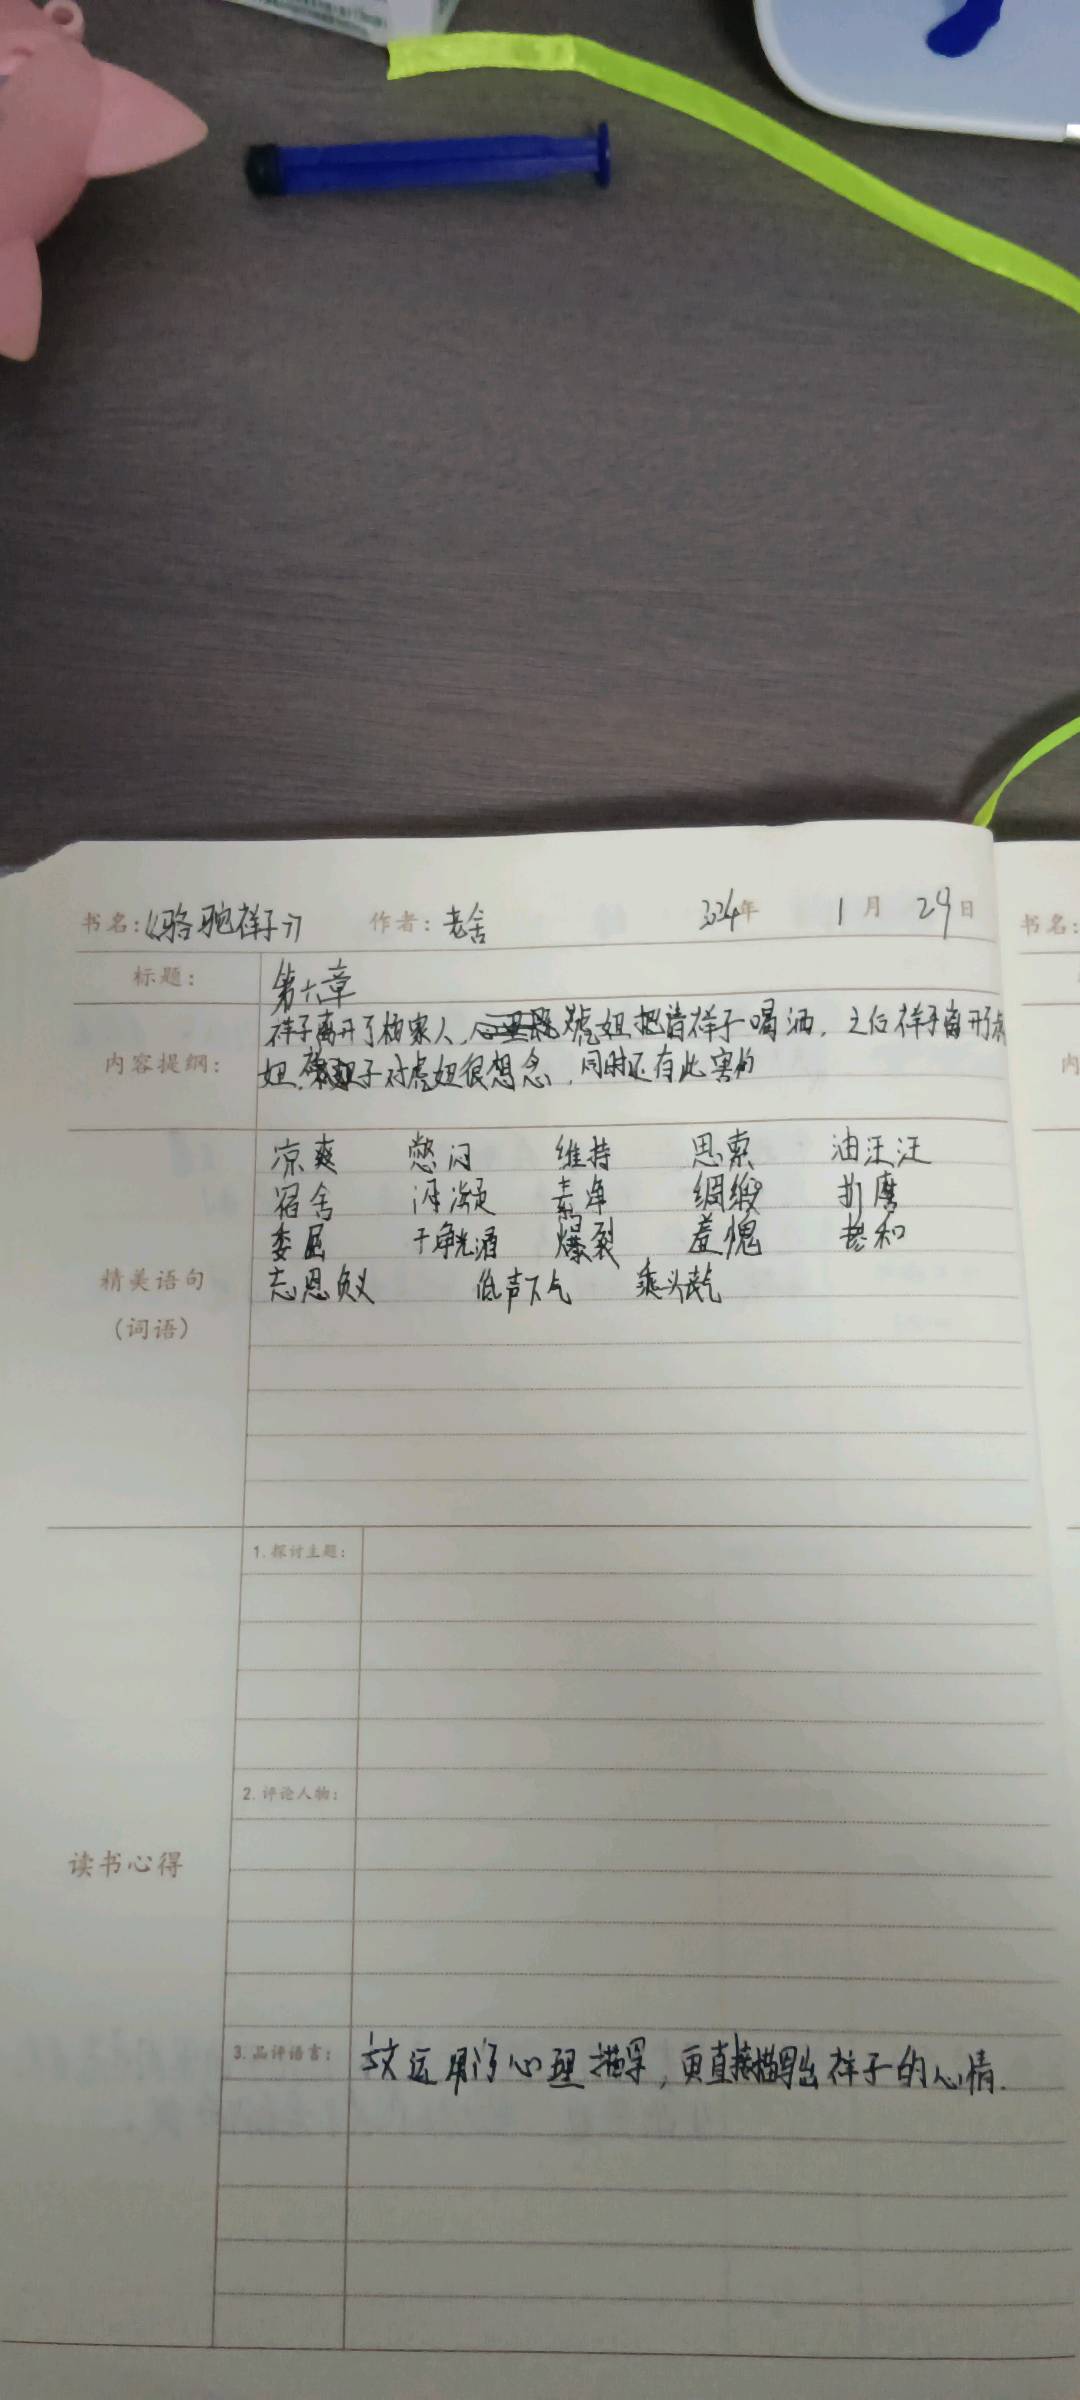 书名:《骆驼祥子》 作者:老舍 2024年 1月 29日 书名:
标题: 第六章
祥子离开了杨家人, 虎妞把请祥子喝酒, 之后祥子离开了虎
内容提纲: 妞, 祥子对虎妞很想念, 同时还有些害怕
凉爽 憋闷 维持 思索 油汪汪
宿舍 浑凝 素净 绸缎 折磨
委屈 干净光滑 爆裂 羞愧 搀和
精美语句 忘恩负义 低声下气 垂头丧气
(词语)
1.探讨主题:
2.评论人物:
读书心得
3.品评语言: 该文运用了心理描写, 更直接描写出祥子的心情.